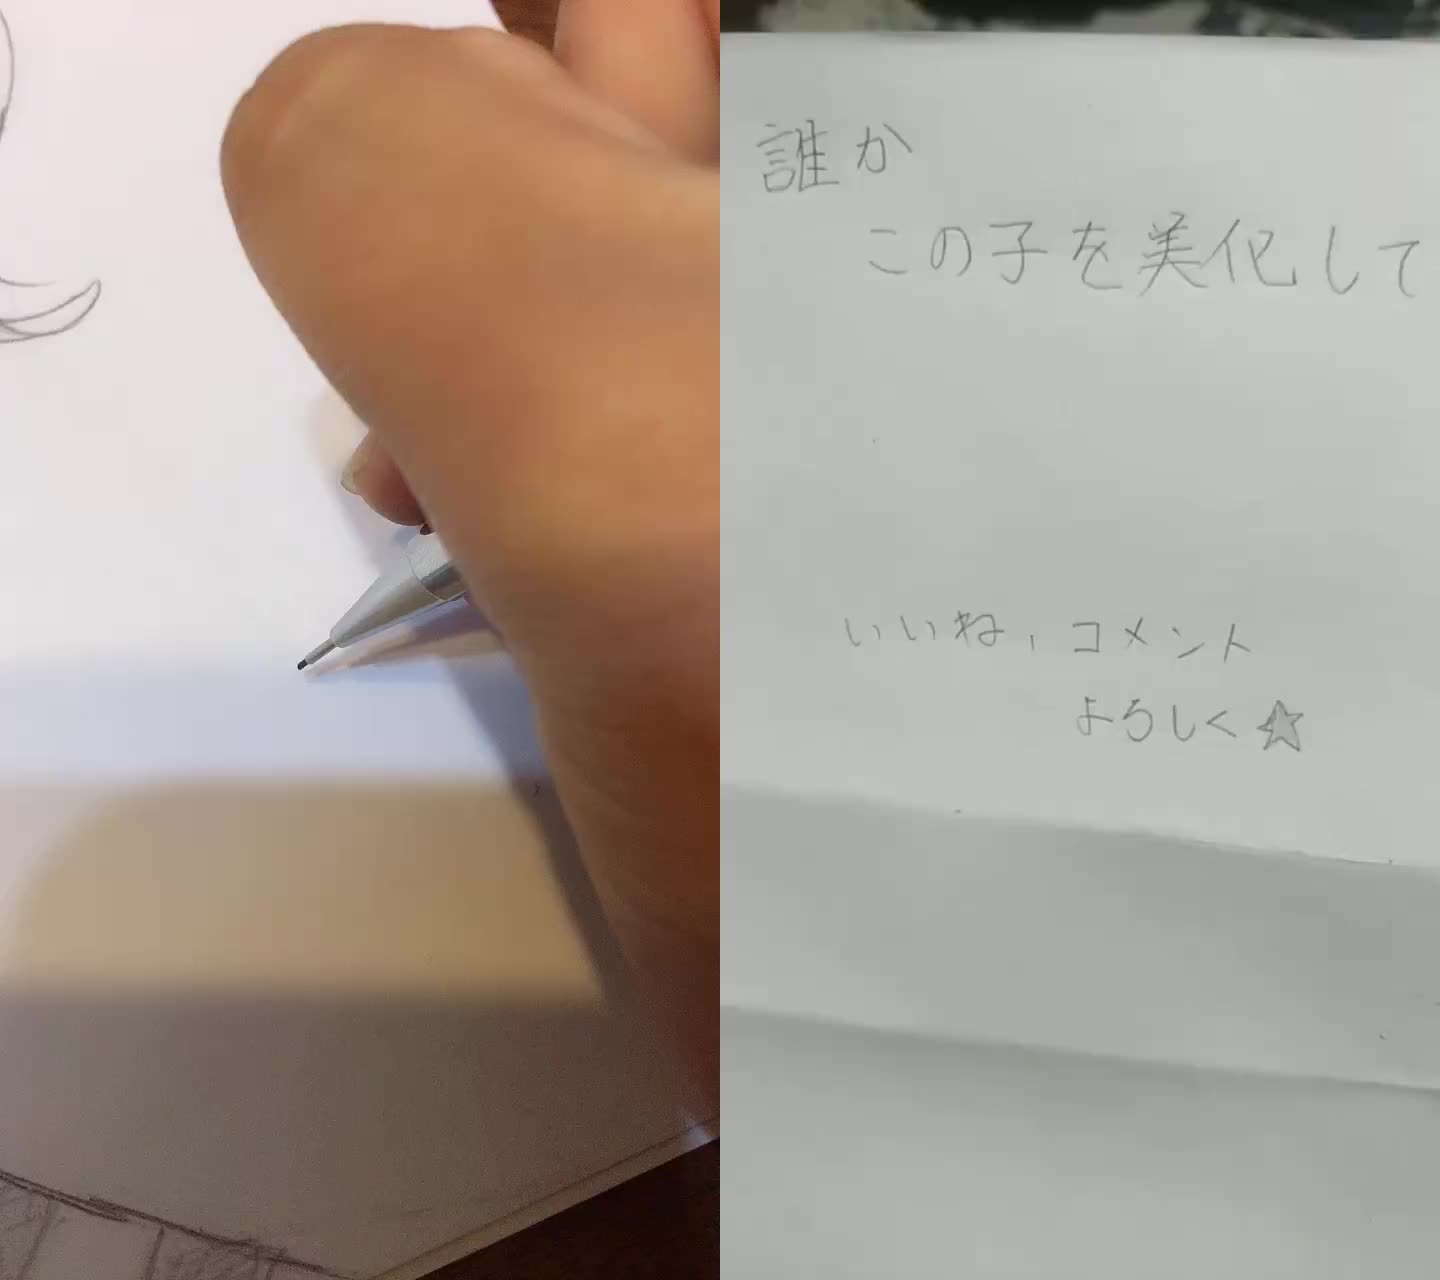 誰か
この子を美化して
いいね,コメント
よろしく☆